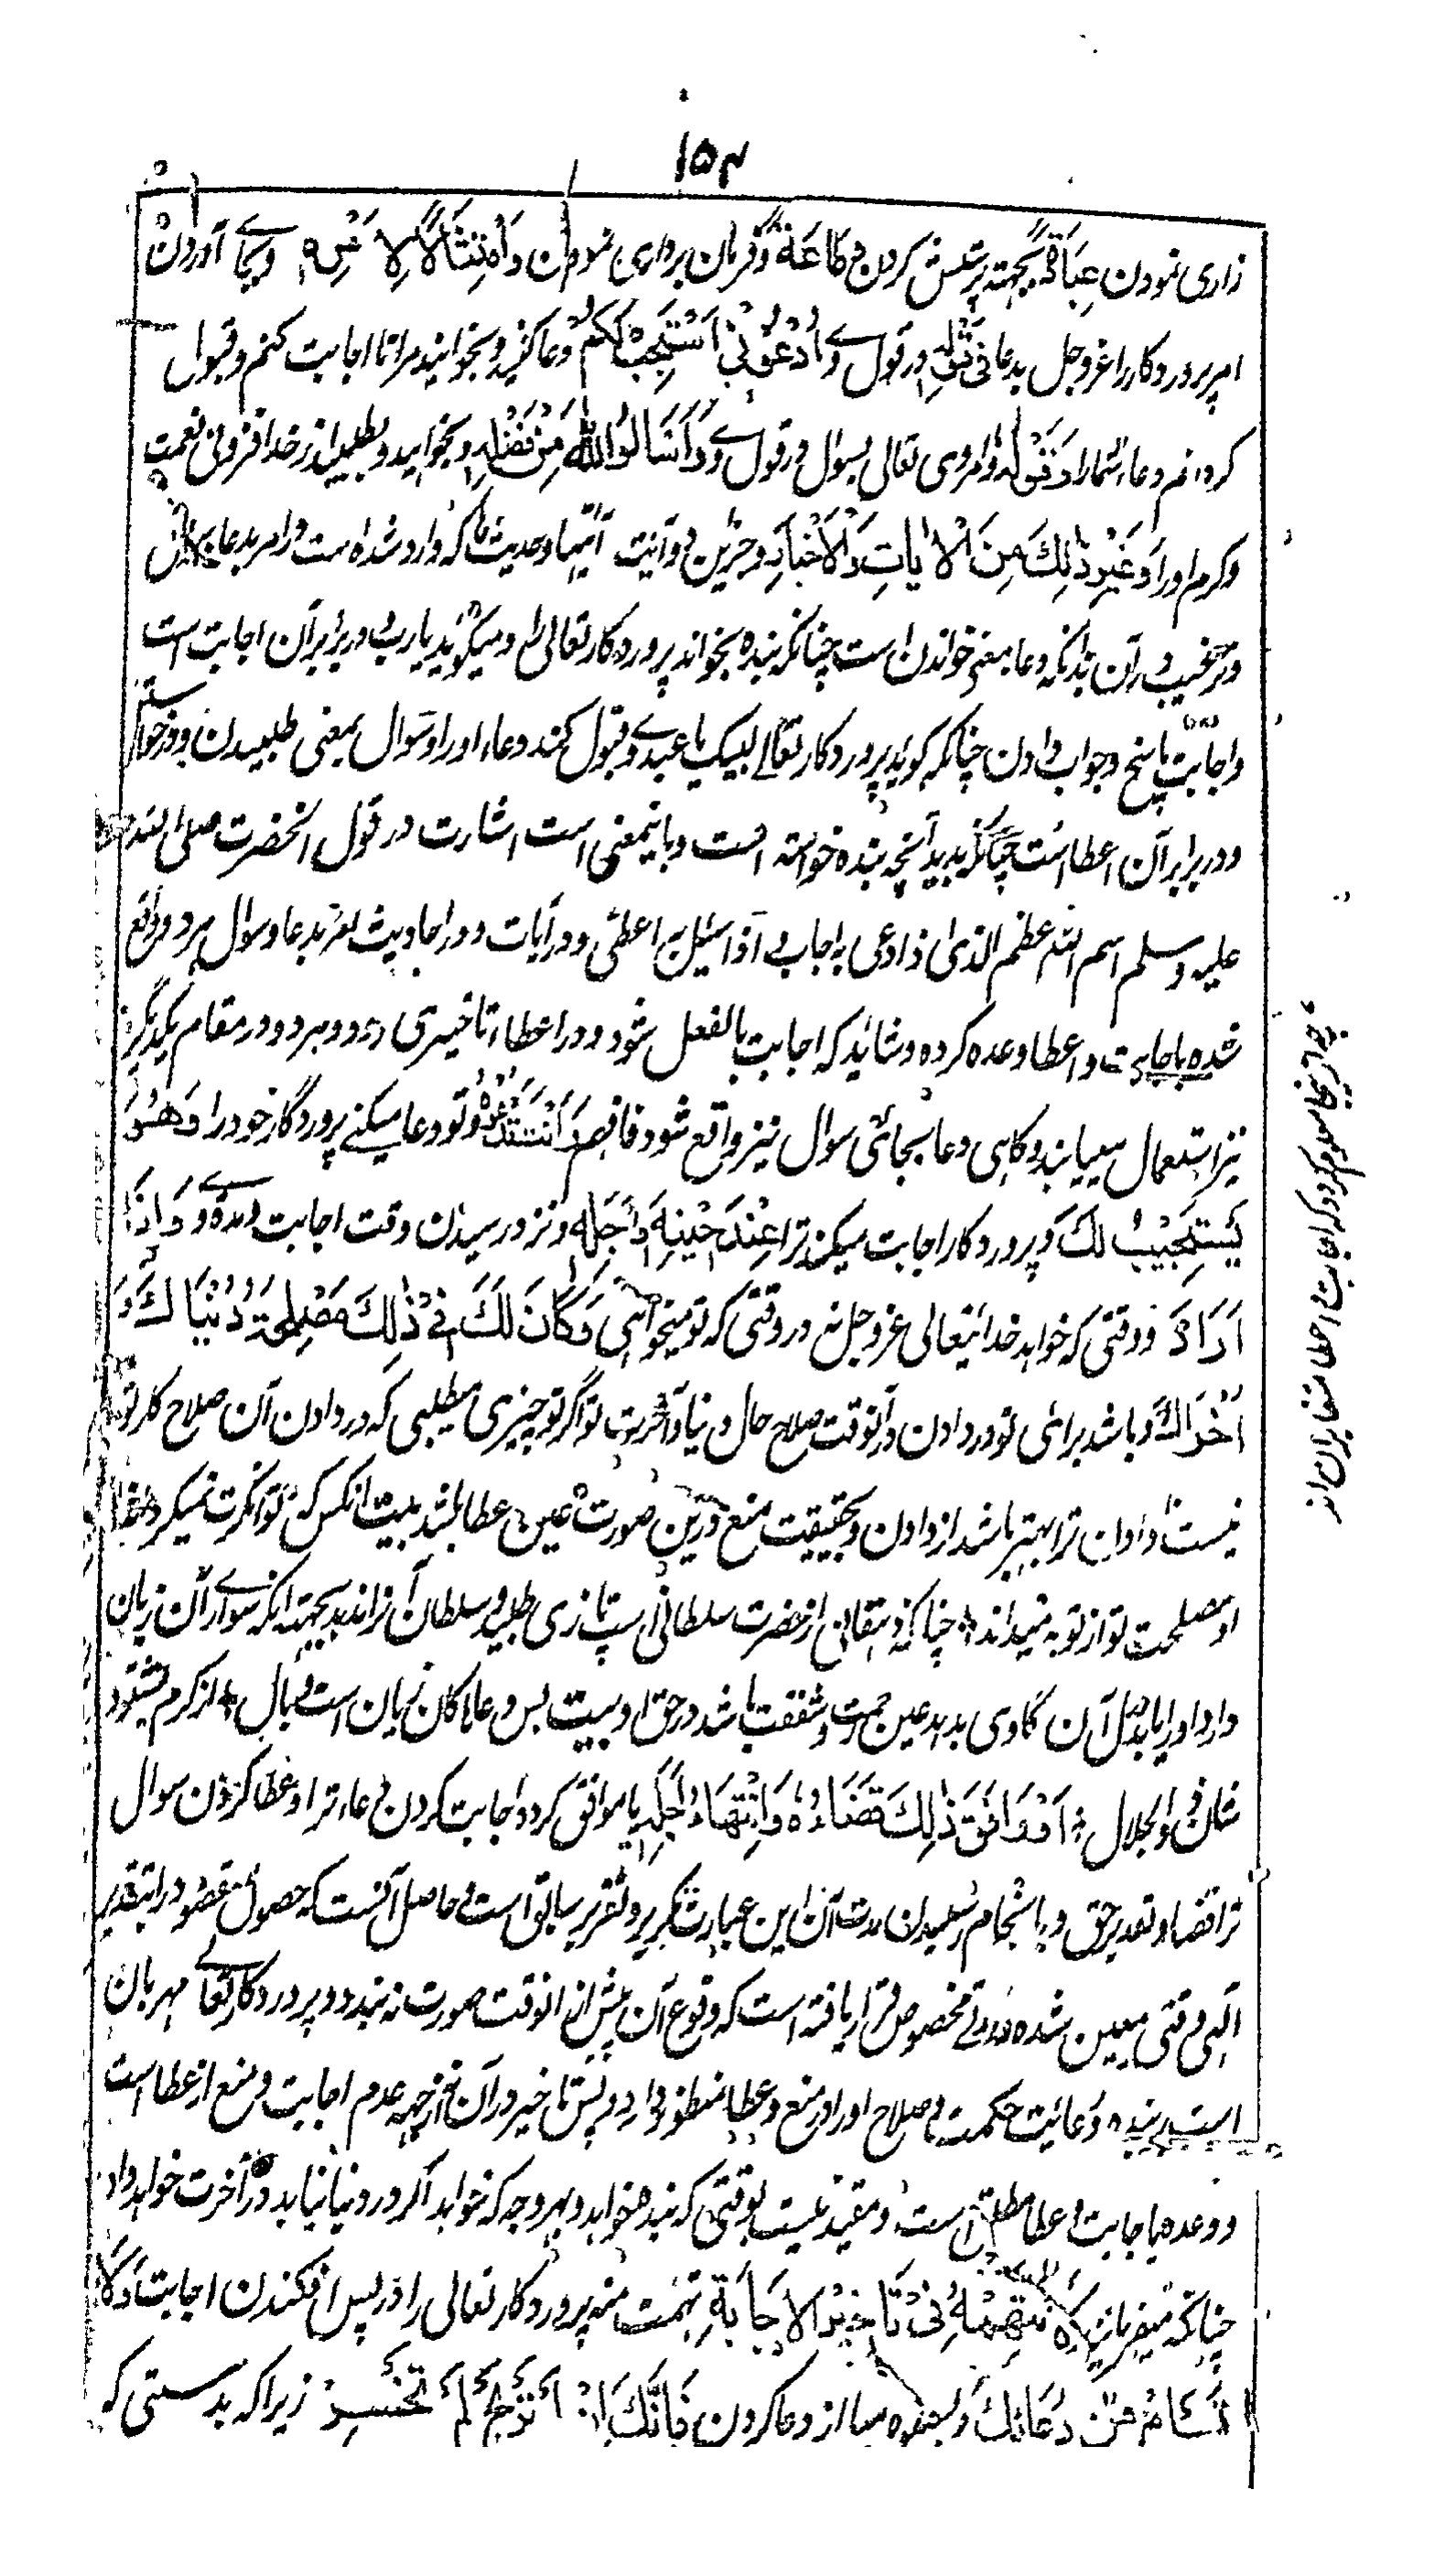 ۱۵۴
زاری نمودن عِبَادَةً بجهته پرستش کردن وَطَاعَةً و فرمان برداری نمودن وَامْتِثَالًا لِاَمْرِهٖ و بجای آوردن
امر پروردگار را عز و جل بدعا فِی قَوْلِهٖ در قول وے اُدْعُوْنِیْ اَسْتَجِبْ لَکُمْ دعا کنید و بخوانید مرا تا اجابت کنم و قبول
کردانم دعاء شمارا وَقَوْلِهٖ و امر وی تعالی بسوال در قول وے وَاسْاَلُوا اللّٰهَ مِنْ فَضْلِهٖ و بخواهید و بطلبید از خدا افزونی نعمت
و کرم او را وَغَیْرِ ذٰلِکَ مِنَ الْاٰیَاتِ وَالْاَخْبَارِ و جز این دو آیت آیتها و حدیثها که وارد شده است در امر بدعا
و ترغیب در آن بدانکه دعا بمعنی خواندن است چنانکه بنده بخواند پروردگار تعالی را و میگوید یا رب و در برابر آن اجابت است
و اجابت پاسخ و جواب دادن چنانکه گوید پروردگار تعالے لبیک یا عبدے و قبول کند دعاء او را و سوال بمعنی طلبیدن و درخواستن
و در برابر آن اعطا است چنانکه بدید آنچه بنده خواسته است و باینمعنی است اشارت در قول آنحضرت صلی الله
علیه و سلم اسم الله اعظم الذی اذا دعی به اجاب و اذا سئل به اعطی و در آیات و در احادیث امر بدعا و سوال هر دو واقع
شده باجابت و اعطا وعده کرده و شاید که اجابت بالفعل شود و در اعطاء تاخیری رود و هر دو در مقام یکدیگر
نیز استعمال مییابند و کاهی دعا بجائی سوال نیز واقع شود فافهم وَاَنْتَ تَدْعُوْهُ و تو دعا میکنے پروردگار خود را وَهُوَ
یَسْتَجِیْبُ لَکَ و پروردگار اجابت میکند ترا عِنْدَ حِیْنِهٖ وَاَجَلِهٖ و نزد رسیدن وقت اجابت و مدۀ وے وَاِذَا
اَرَادَ و وقتی که خواهد خدایتعالی عز و جل نه در وقتی که تو میخواهی وَکَانَ لَکَ فِیْ ذٰلِکَ مَصْلِحَةُ دُنْیَاکَ وَ
اُخْرَاکَ و باشد برای تو در دادن در آنوقت صلاح حال دنیا و آخرت تو اگر تو چیزی میطلبی که در دادن آن صلاح کار تو
نیست نا دادن ترا بهتر باشد از دادن و بحقیقت منع درین صورت عین عطا باشد بیت آنکس که توانگرت نمیکرداند
او مصلحت تو از تو به میداند چنانکه دهقانی از حضرت سلطانی اسپ تازی طلبد و سلطان آنرا ندهد بجهته آنکه سوارآن زیان
دارد او را بلکه بدل آن گاوی بدهد عین رحمت و شفقت باشد در حق او بیت بس دعاها کان زیان است و وبال از کرم می‌نشنود
شان ذوالجلال اَوْ وَافَقَ ذٰلِکَ قَضَاءُهٗ وَانْتِهَاءُ اَجَلِهٖ یا موافق کردد اجابت کردن دعاء ترا و عطا کردن سوال
ترا قضا و تقدیر حق و با نجام رسیدن مدت آن این عبارت تکریر و تقریر سابق است و حاصل آنست که حصول مقصود را بتقدیر
الهی وقتی معین شده و مدتے مخصوص قرار یافته است که وقوع آن پیش از آنوقت صورت نه بندد و پروردگار تعالے مهربان
است بر بنده و رعایت حکمت و صلاح او را در منع و عطا منظور دارد و پس تاخیر در آن نه از جهة عدم اجابت و منع از عطا است
و وعده باجابت و اعطا مطلق است و مقید نیست بوقتی که بنده خواهد و بهر وجه که خواهد اگر در دنیا نیابد در آخرت خواهد داد
چنانکه میفرماید لَا تَتَّهِمْهُ فِیْ تَاخِیْرِ الْاِجَابَةِ تهمت منه پروردگار تعالی را در پس افکندن اجابت وَلَا
تَسْاَمْ مِنْ دُعَائِکَ و بستوه میا از دعا کردن فَاِنَّکَ اِنْ لَمْ تَرْبَحْ لَمْ تَخْسِرْ زیرا که بدرستی که
از اینجا معلوم کردد که اجابت و اعطا متغایران اند